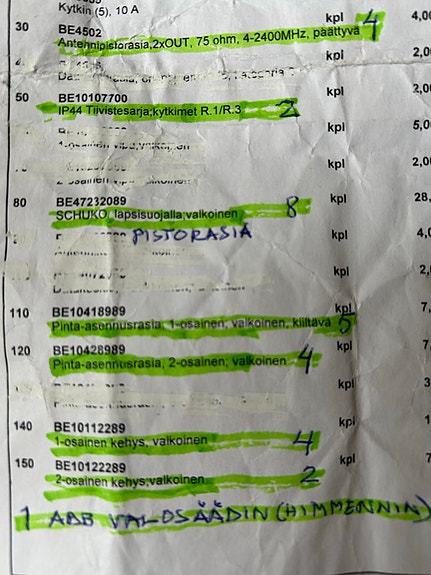 Kytkin (5), 10 A
30 BE4502 kpl 4 4,00
Antennipistorasia,2xOUT, 75 ohm, 4-2400MHz, päättyvä
kpl 2,00
50 BE10107700 kpl 2,00
IP44 Tiivistesarja;kytkimet R.1/R.3 2
kpl 5,0
kpl 2,0
80 BE47232089 kpl 28,
SCHUKO, lapsisuojalla;valkoinen 8
PISTORASIA kpl 4,0
kpl 2,
110 BE10418989 kpl 7,
Pinta-asennusrasia, 1-osainen, valkoinen, kiiltävä 5
120 BE10428989 kpl 7,
Pinta-asennusrasia, 2-osainen, valkoinen 4
kpl 3
140 BE10112289 kpl 1
1-osainen kehys, valkoinen 4
150 BE10122289 kpl 7
2-osainen kehys;valkoinen 2
1 ABB VALOSÄÄDIN (HIMMENNIN)